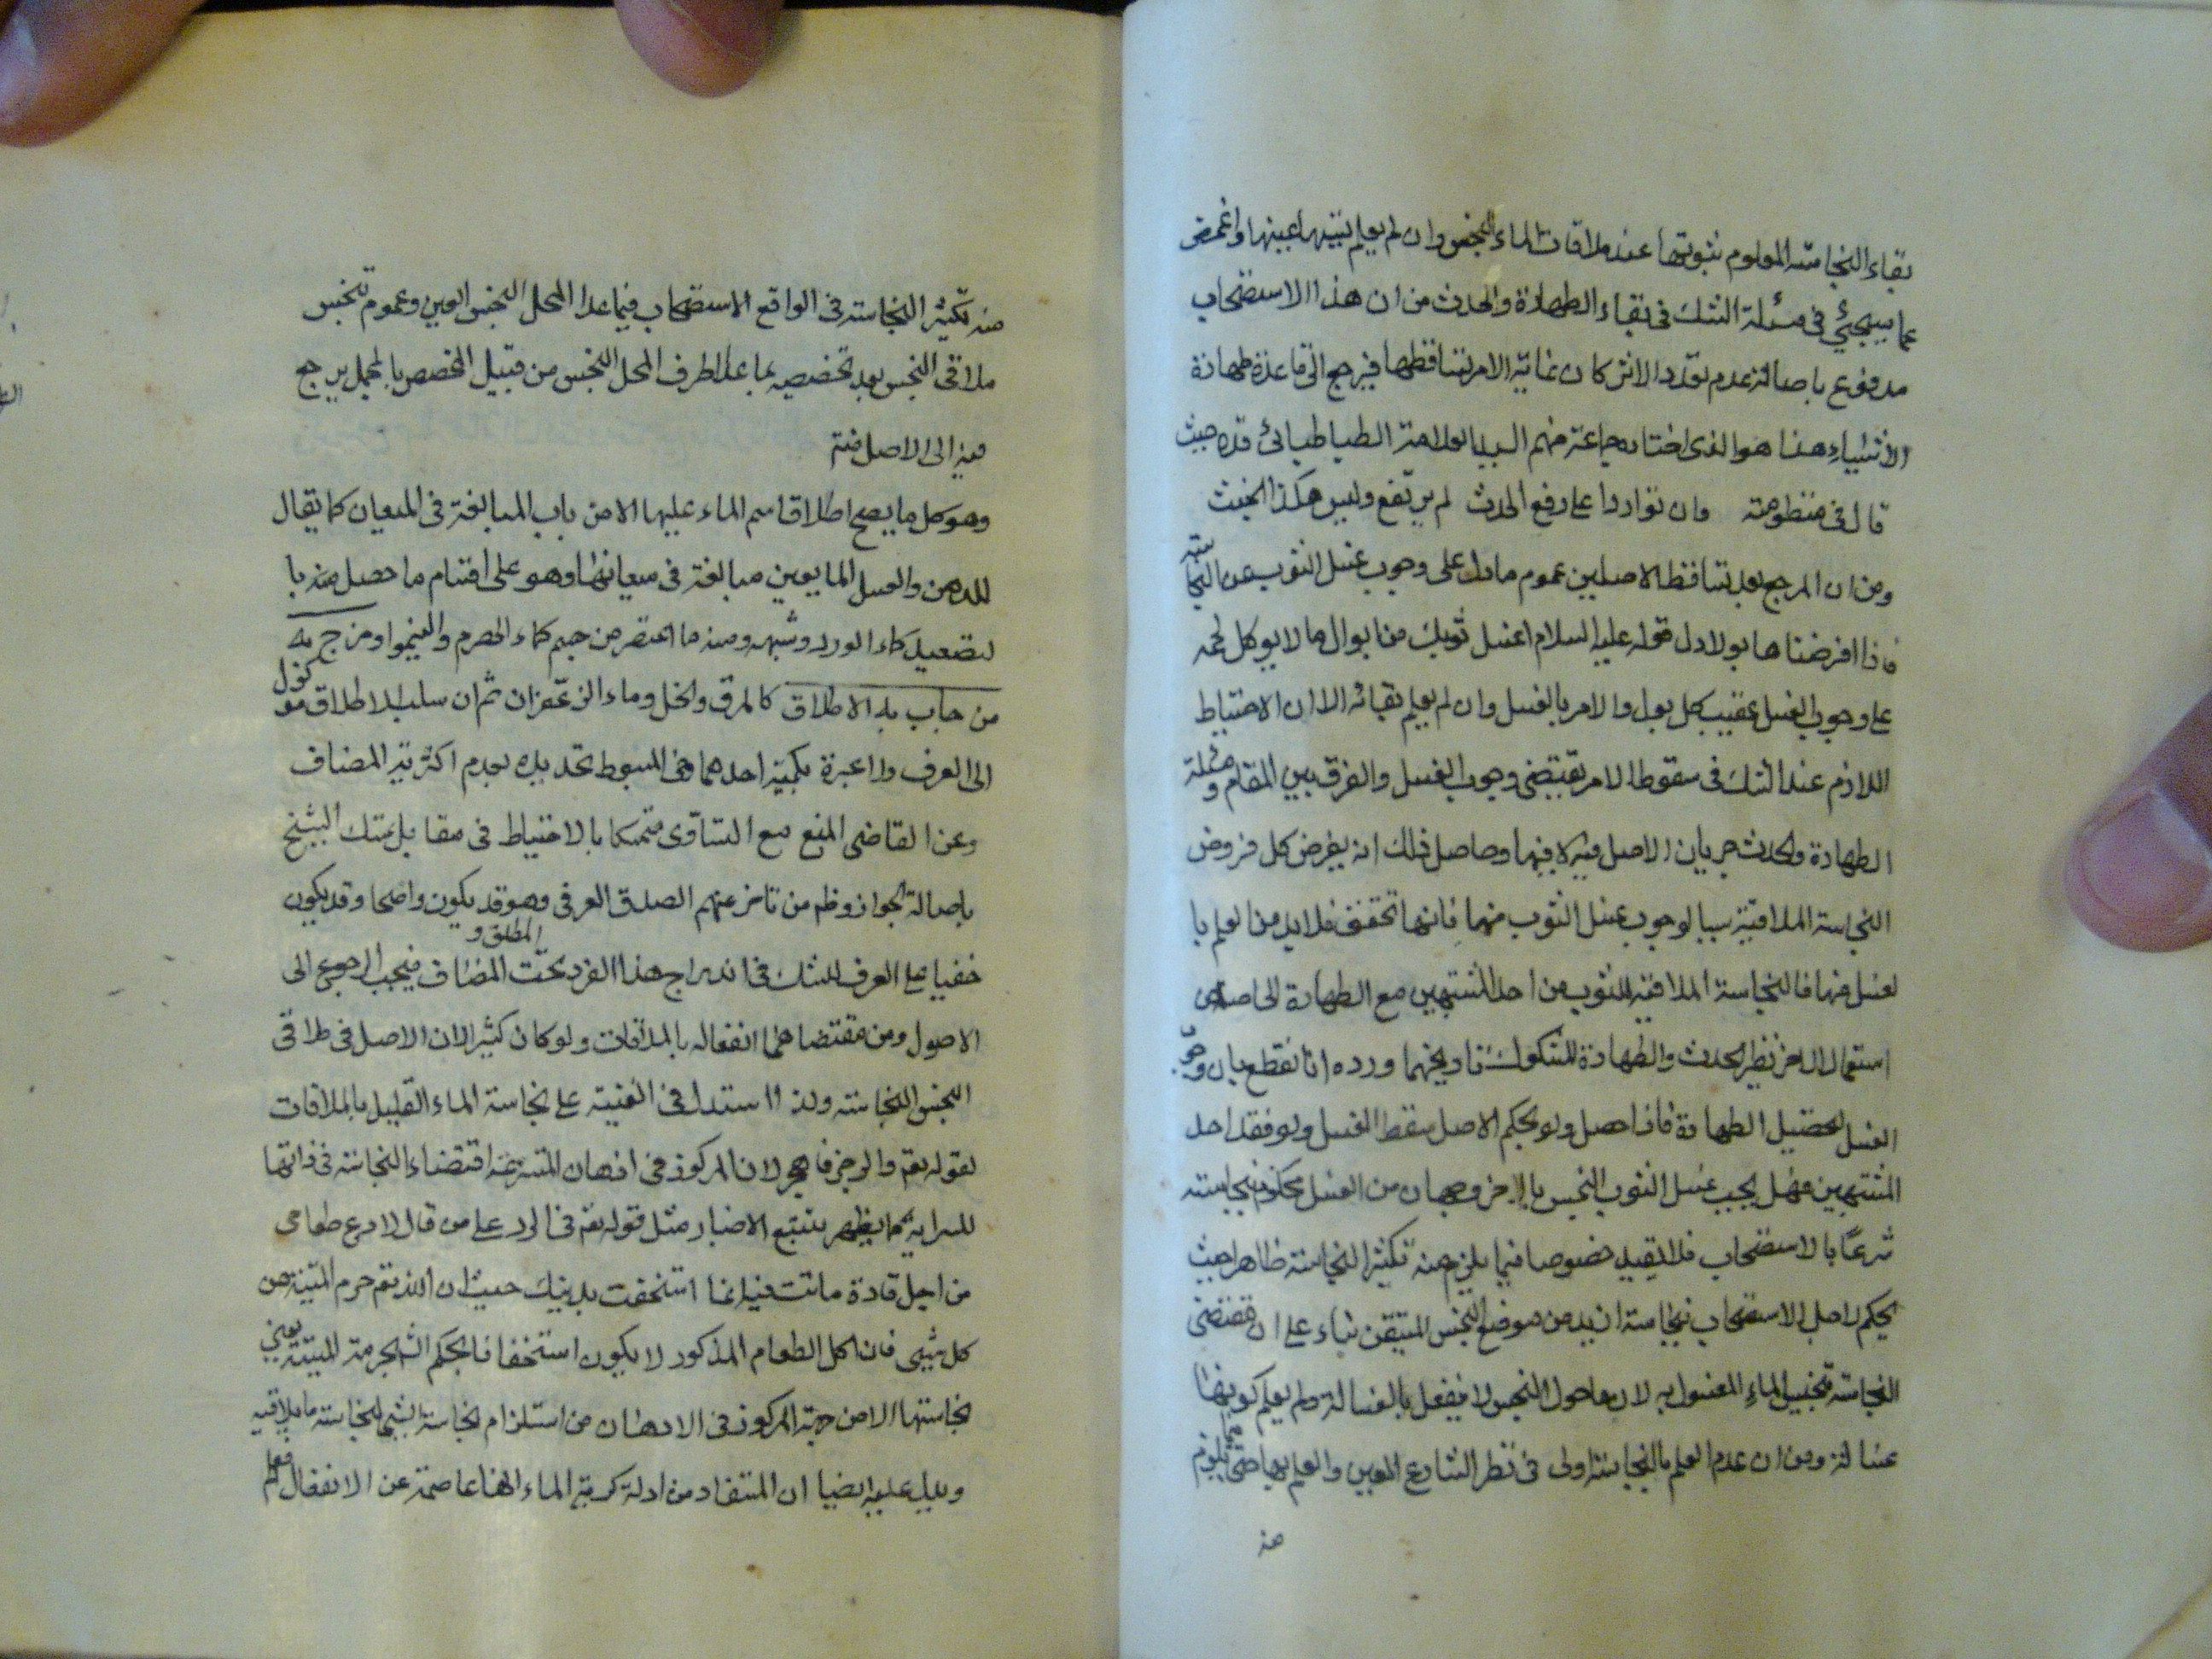 بقاء النجاسة المعلوم ثبوتها عند ملاقات الماء النجس وان لم يعلم بعينها واغمض
عما سيجئ في مسئلة الشك في بقاء الطهارة والحدث من ان هذا الاستصحاب
مدفوع باصالة عدم تعدد الاثر كان غاية الامر تساقطهما فيرجع الى قاعدة طهارة
الاشياء هذا هو الذى اختاره جماعة منهم السيد العلامة الطباطبائي قده حيث
قال في منظومته وان تواردا على رفع الحدث لم يرتفع وليس هكذا الخبث
ومن ان المرجع بعد تساقط الاصلين عموم ما دل على وجوب غسل الثوب عن النجاسته
فاذا افرضناها بولا دل قوله عليه السلام اغسل ثوبك من ابوال ما لا يوكل لحمه
على وجوب الغسل عقيب كل بول والامر بالغسل وان لم يعلم بقائه الا ان الاحتياط
اللازم عند الشك في سقوط الامر يقتضى وجوب الغسل والفرق بين المقام ومسئلة
الطهارة والحدث جريان الاصل فيه لا فيها وحاصل ذلك انه يفرض كل فرد من
النجاسة الملاقية سببا لوجوب غسل الثوب منها فانها تحقق فلابد من العلم با
لغسل منها فالنجاسة الملاقية للثوب من احد المشتبهين مع الطهارة الحاصلة من
استعمال الاخر نظير الحدث والطهارة المشكوك تاريخهما ورده انا نقطع بان وجوب
الغسل لتحصيل الطهارة فاذا حصل ولو بحكم الاصل سقط الغسل ولو فقد احد
المشتبهين فهل يجب غسل الثوب النجس بالاخر وجهان من الغسل محكوم بنجاسته
شرعا بالاستصحاب فلا يفيد خصوصا فيما يلزم منه تكثير النجاسة ظاهرا حيث
يحكم لاصل الاستصحاب نجاسة ازيد من موضع النجس المتيقن بناء على ان مقتضى
النجاسة تنجيس الماء المغسول به لان ما حول النجس لا ينفعل بالغسالة ولم يعلم كونها
غسالة ومن ان عدم العلم بالنجاسة اولى في نظر الشارع المبين والعلم بها حتى فيما يلزم
منه
منه تكثير النجاسته في الواقع الاستصحاب فيما عدا المحل النجس المعين وعموم تنجس
ملاقى النجس بعد تخصيصه بما عدا طرف المحل النجس من قبيل المخصص بالمجمل يرجع
فيه الى الاصل فتم
وهو كل ما يصح اطلاق اسم الماء عليها الا من باب المبالغة في الميعان كما يقال
للدهن والعسل المايعين مبالغة في ميعانهما وهو على اقسام ما حصل منه با
لتصعيد كماء الورد وشبهه ومنه ما اعتصر من جسم كماء الحصرم والغيم او مزج به
من جاب به الاطلاق كالمرق والخل وماء الزعفران ثم ان سلب الاطلاق موكول
الى العرف ولا عبرة بكمية احدهما وفى المبسوط تحديده بعدم اكثرية المضاف
وعن القاضى المنع مع التساوى متمسكا بالاحتياط في مقابل تمسك الشيخ
باصالة الجواز وظم من تاخر عنهم الصدق العرفى وهو قد يكون واضحا وقد يكون
خفيا على العرف للشك في اندراج هذا الفرد تحت المطلق و المضاف فيجب الرجوع الى
الاصول ومن مقتضاهما انفعاله بالملاقات ولو كان كثيرا لان الاصل في ملاقى
النجس النجاسته ولذا استدل في الغنية على نجاسة الماء القليل بالملاقات
لقوله تعم والرجز فاهجر لان المركوز في اذهان المتشرعة اقتضاء النجاسة في ذاتها
للسراية كما يظهر بتتبع الاخبار مثل قوله عم في الرد على من قال لا ادع طعامى
من اجل فارة ماتت فيه انما استخفت بدينك حيث ان الله تعم حرم الميتة من
كل شيئى فان اكل الطعام المذكور لا يكون استخفافا بحكم الله بحرمة الميتة يعنى
نجاستها الا من جهة المركوز في الاذهان من استلزام نجاسة الشيئى لنجاسة ما يلاقيه
ويدل عليه ايضا ان المستفاد من ادلة كرية الماء انها عاصمة عن الانفعال فعلم